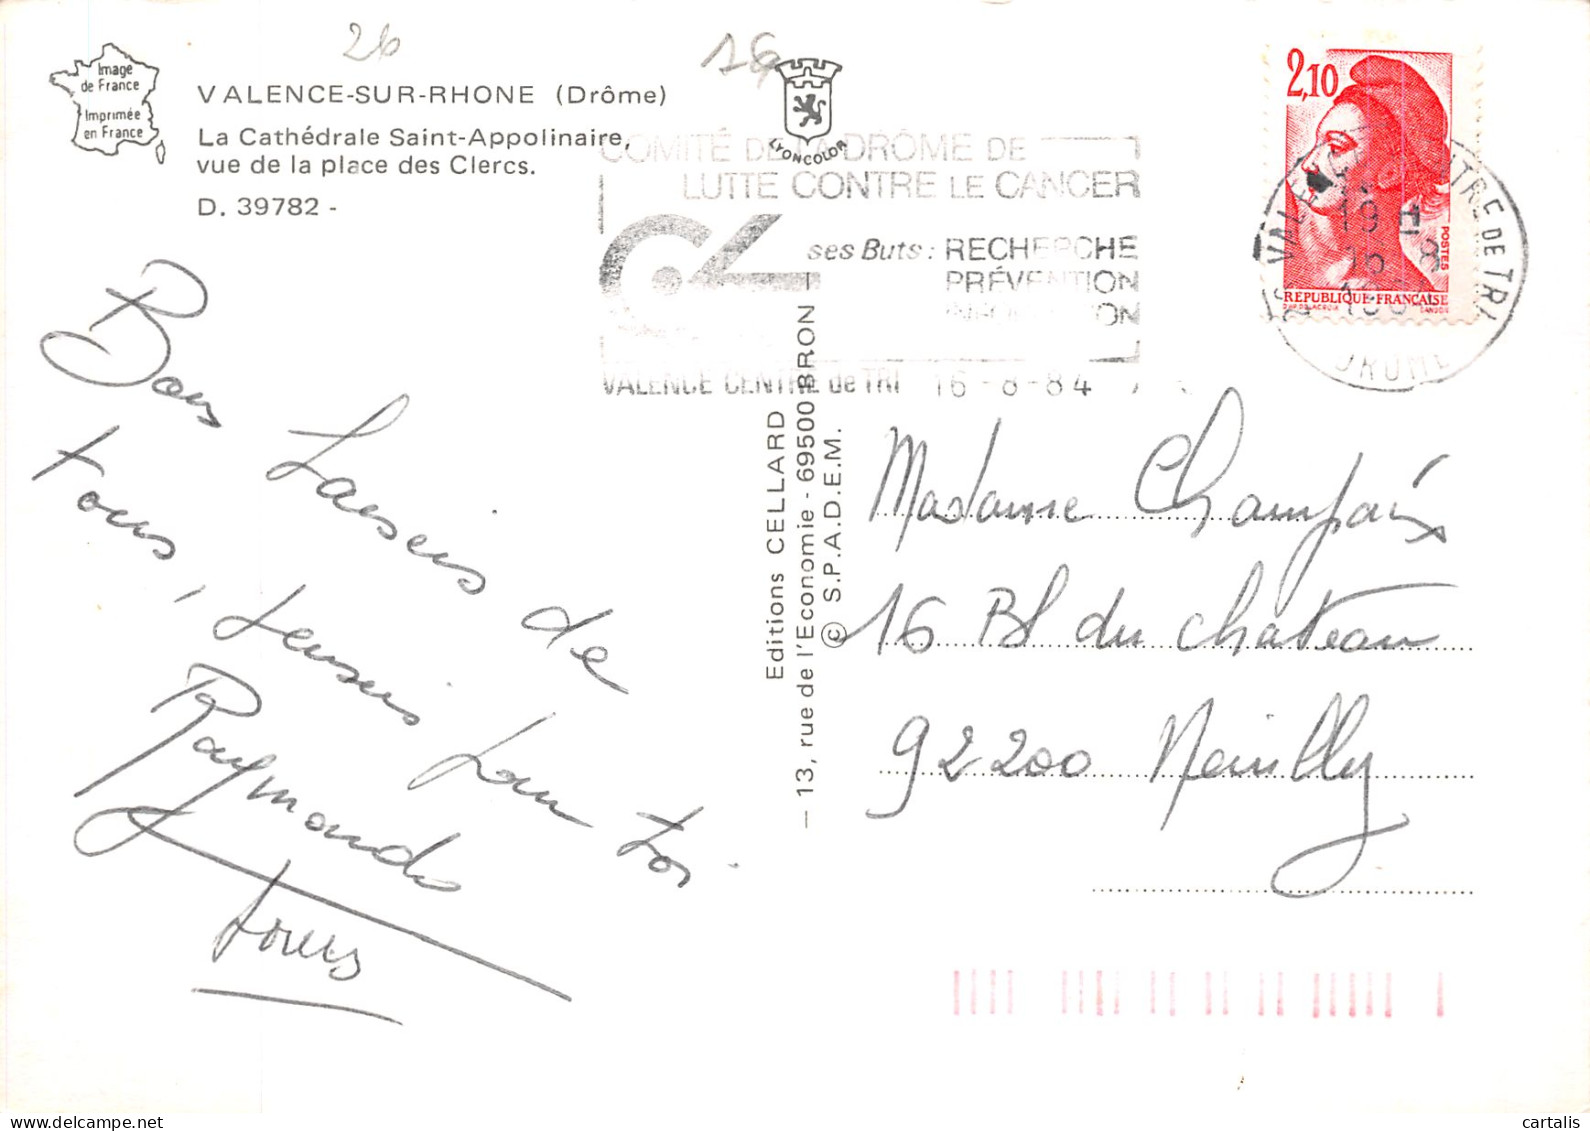 26
16
Image
de France
Imprimée
en France
VALENCE-SUR-RHONE (Drôme)
La Cathédrale Saint-Appolinaire,
vue de la place des Clercs.
D. 39782 -
LYONCOLOR
COMITÉ DE LA DRÔME DE
LUTTE CONTRE LE CANCER
ses Buts : RECHERCHE
PRÉVENTION
INFORMATION
VALENCE CENTRE de TRI 16 - 8 - 84
2,10
POSTES
RÉPUBLIQUE FRANÇAISE
D'AP. DELACROIX GANDON
VALENCE CENTRE DE TRI
19 H
16 8
DROME
Bons Baisers de
tous,
Raymonde
Editions CELLARD
— 13, rue de l'Economie - 69500 BRON —
© S.P.A.D.E.M.
Madame Champaix
16 Bd du chateau
92200 Neuilly
cartalis
delcampe.net